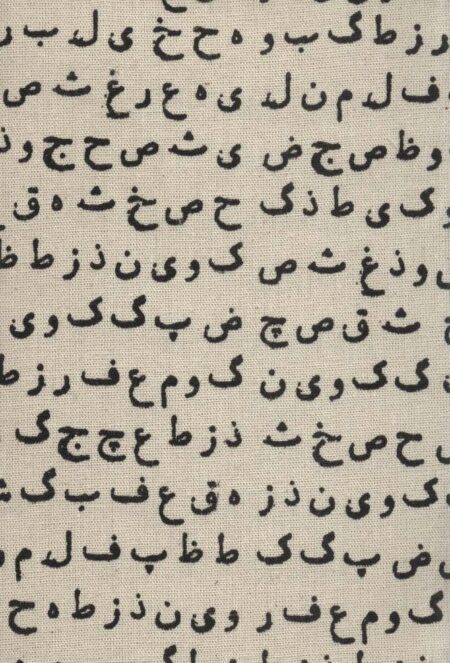 ر ز ط گ ب و ه ح خ ی ل د ب ر
ف ل د م ن ل د ی ه ع ر غ ث ص
و ظ ص ج ض ی ث ص ح ج و ذ
و ک ی ط ذ گ ح ص خ ث ه ق
و ذ غ ث ص ک و ی ن ذ ز ط ظ
ث ق ص چ ض پ گ ک و ی
ن گ ک و ی ن گ و م ع ف ر ز ط
ح ص خ ث ذ ز ط ع چ ج گ
ک و ی ن ذ ز ه ق ع ف ب گ ش
ض پ گ ک ط ظ پ ف ل د م
گ و م ع ف ر و ی ن ذ ز ط ه ح